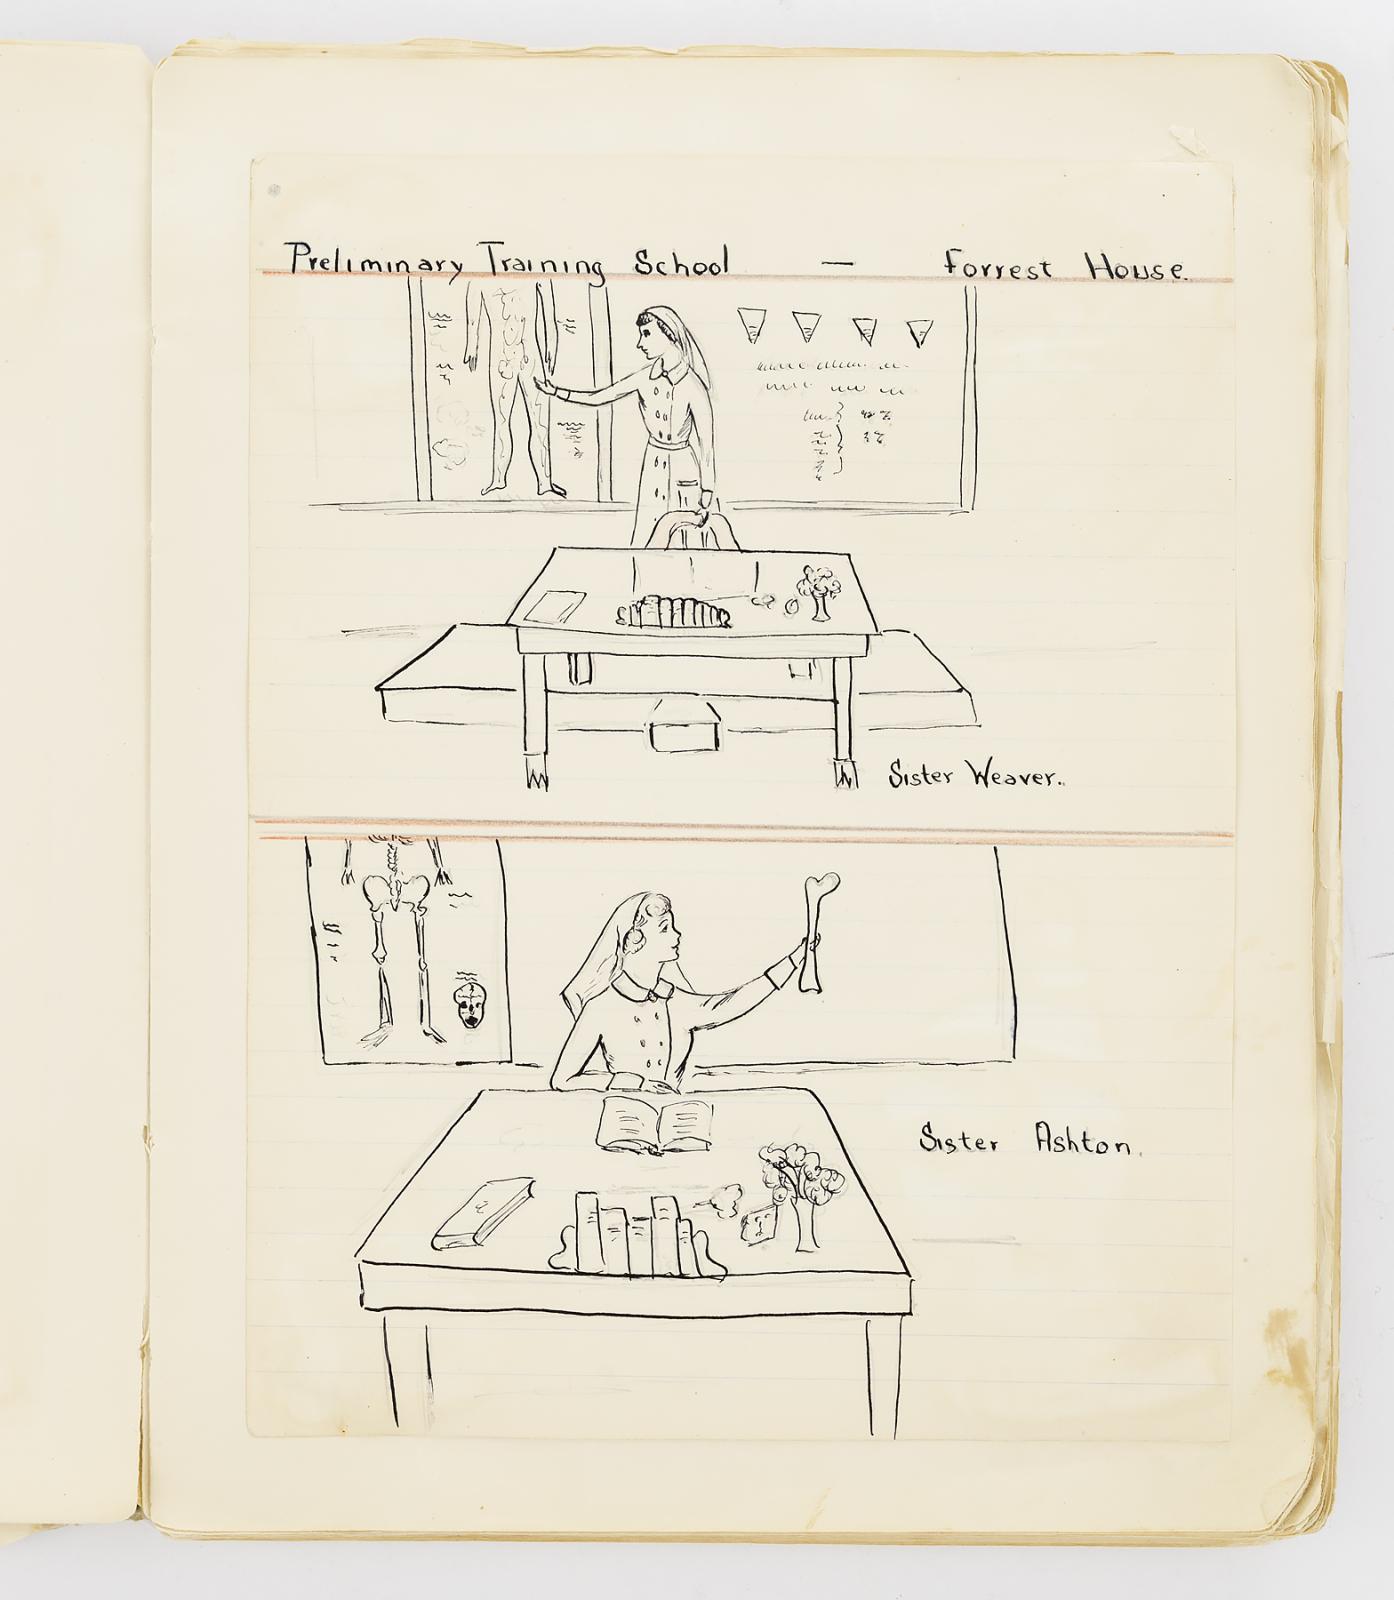 Preliminary Training School — Forrest House.
Sister Weaver.
Sister Ashton.